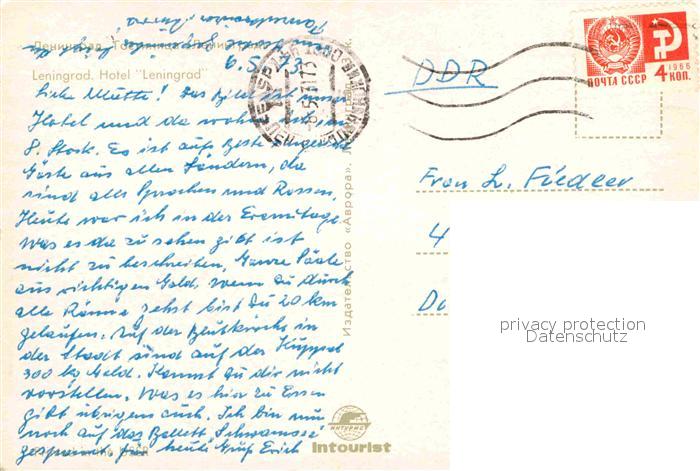 Ленинград. Гостиница "Ленинград"
Leningrad. Hotel "Leningrad"
6.5.73.
Liebe Mutti! Das Bild ist unser
Hotel und da wohne ich im
8. Stock. Es ist aufs Beste
Gäste aus allen Ländern, da
sind alle Sprachen und Rassen,
Heute war ich in der Eremitage
Was es da zu sehen gibt ist
nicht zu beschreiben, Ganze Säle
aus richtigen Gold, wenn du durch
alle Räume gehst bist Du 20 km
gelaufen. Auf der Blutkirche in
der Stadt sind auf der Kuppel
300 kg Gold. Kannst du dir nicht
vorstellen. Was es hier zu Essen
gibt übrigens auch. Ich bin nun
noch auf das Ballett Schwansee
gespannt für heute Gruß Erich
Издательство «Аврора».
ИНТУРИСТ
Intourist
ПОЧТА СССР
1966
4 КОП.
DDR
Frau L. Fiedler
4
Do
privacy protection
Datenschutz